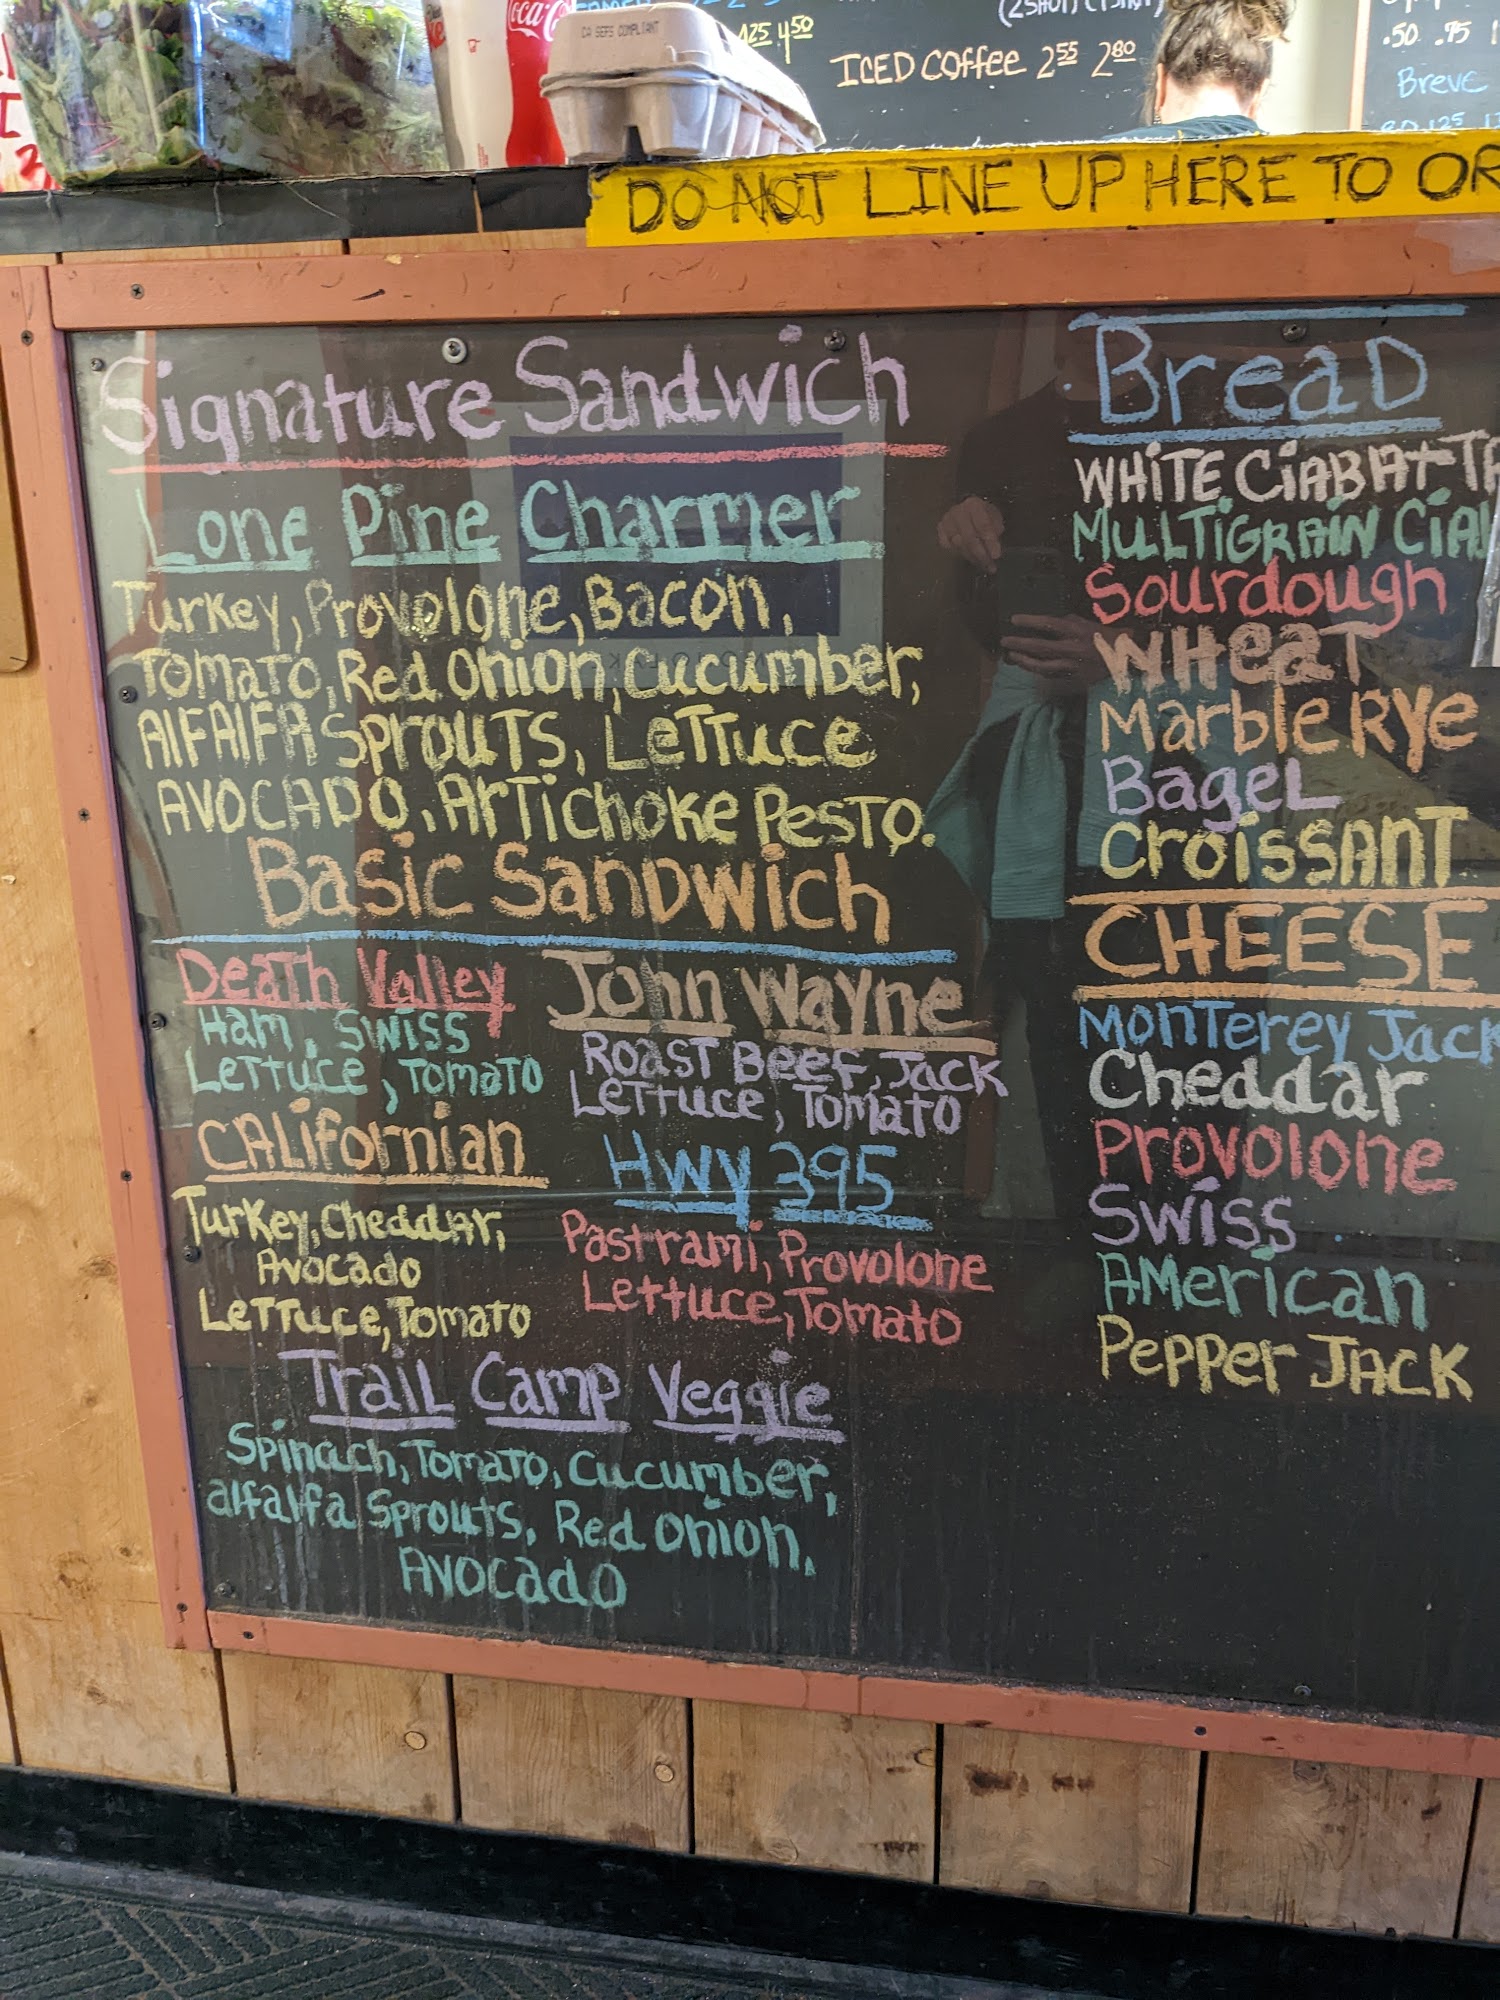 Coca-C
CA SEFS COMPLIANT
4 50
ICED COFFEE 2 55 2 80
.50 .75
Breve
DO NOT LINE UP HERE TO OR
Signature Sandwich
Lone Pine Charmer
Turkey, Provolone, Bacon,
Tomato, Red Onion, Cucumber,
AlFAlFA Sprouts, Lettuce
Avocado, Artichoke Pesto.
Basic Sandwich
Death Valley
Ham, Swiss
Lettuce, Tomato
John Wayne
Roast Beef, Jack
Lettuce, Tomato
CALifornian
Turkey, Cheddar,
Avocado
Lettuce, Tomato
Hwy 395
Pastrami, Provolone
Lettuce, Tomato
Trail Camp Veggie
Spinach, Tomato, Cucumber,
alfalfa Sprouts, Red Onion,
Avocado
Bread
WHITE CIABATTA
MULTIGRAIN CIA
Sourdough
Wheat
Marble Rye
Bagel
Croissant
CHEESE
Monterey Jack
Cheddar
Provolone
Swiss
American
Pepper Jack